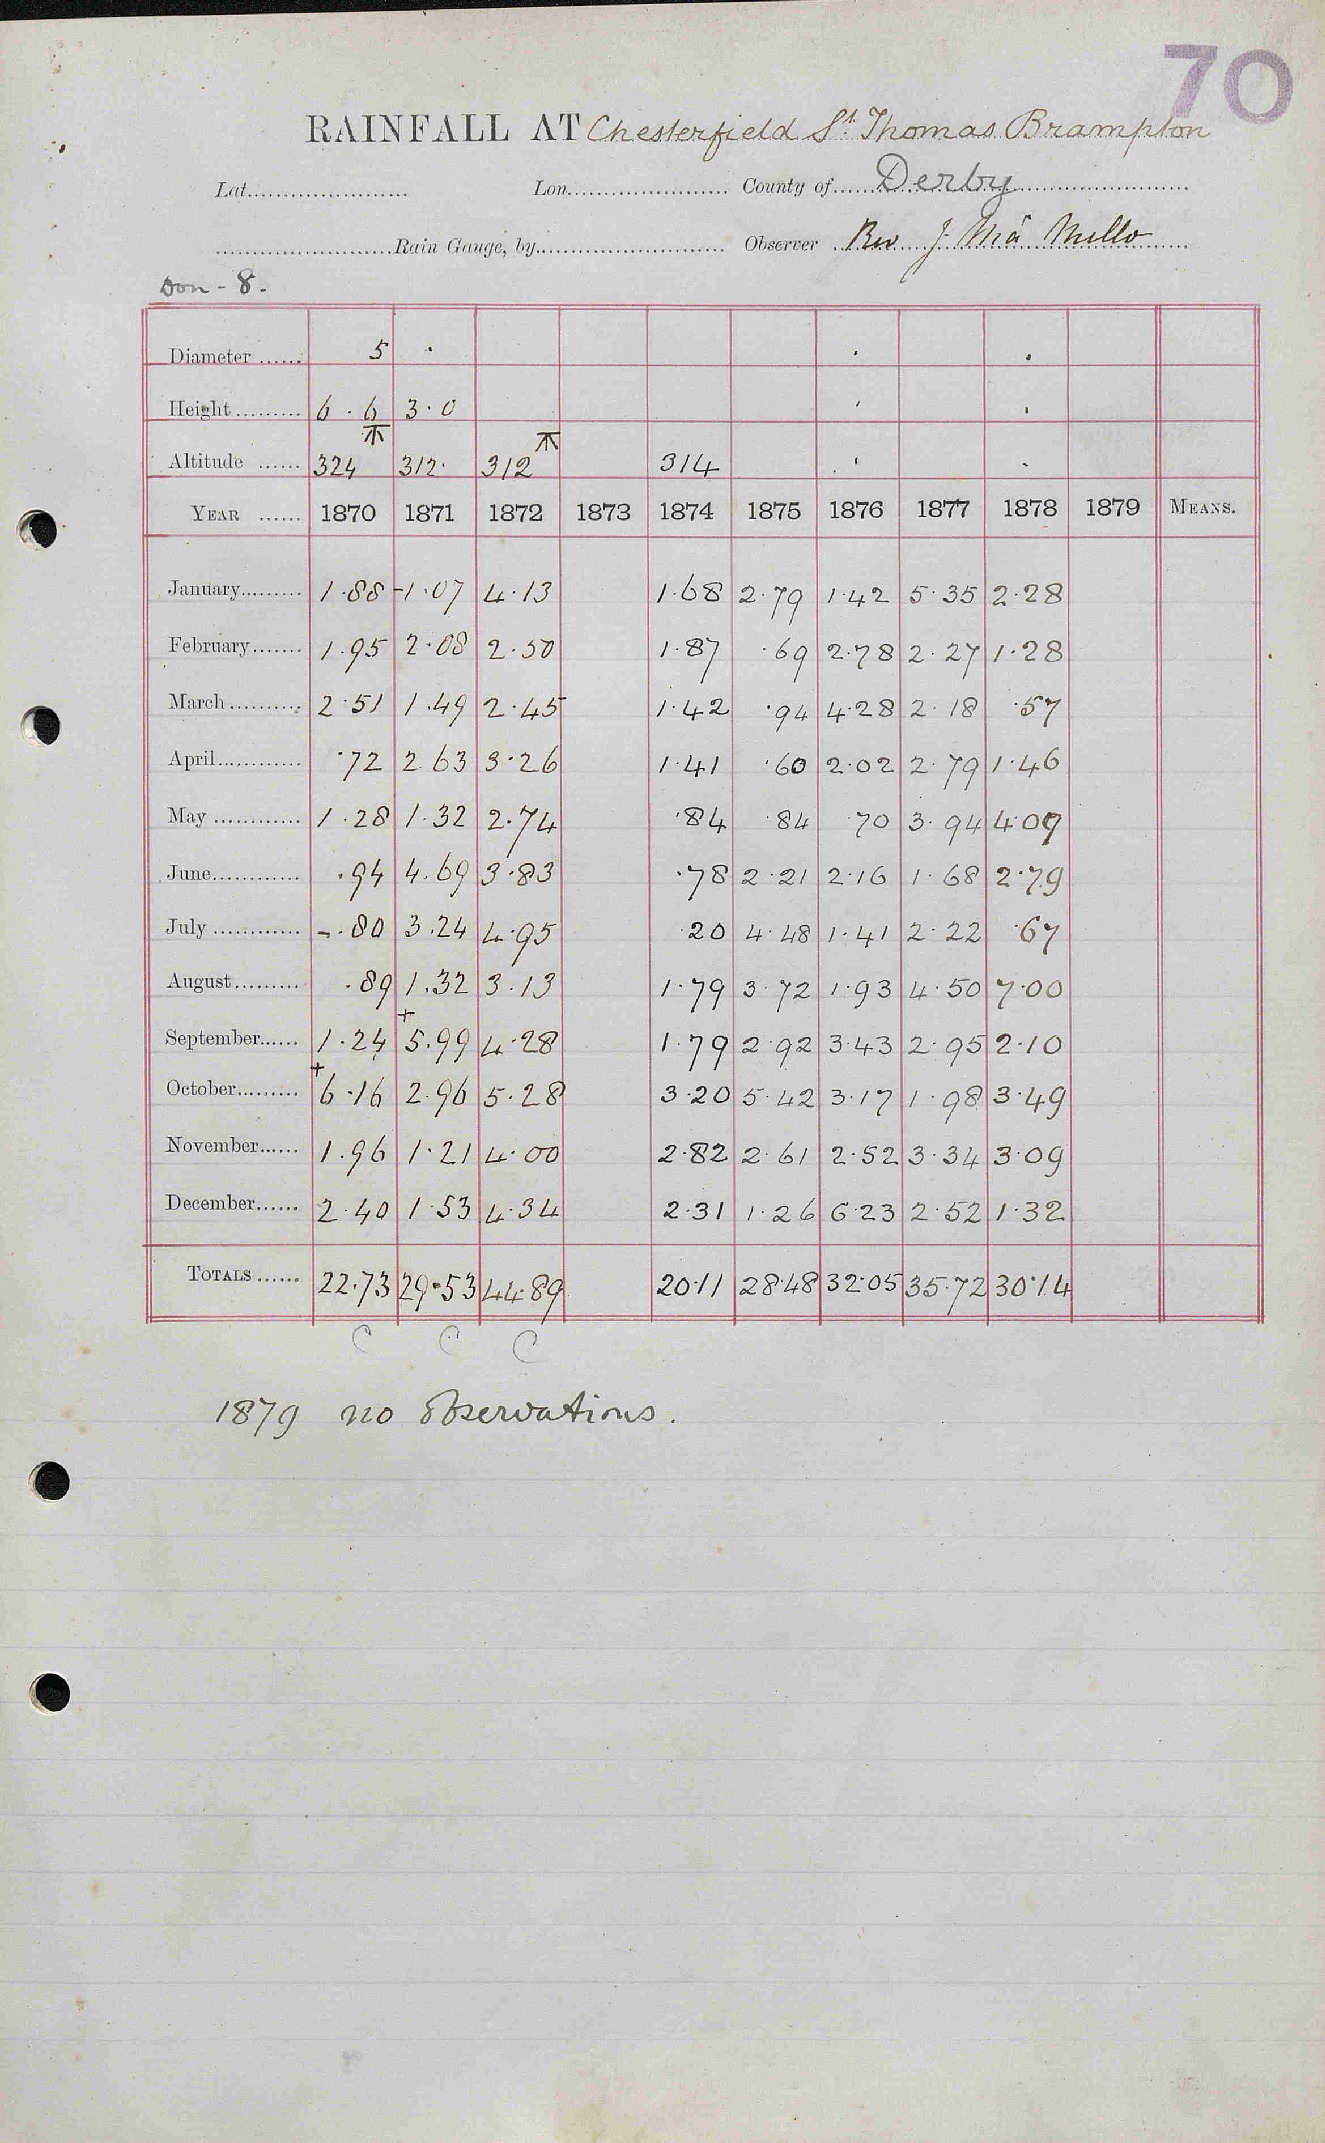 70
RAINFALL AT Chesterfield St Thomas Brampton
Lat. Lon. County of Derby
Rain Gauge, by Observer Rev J. Mā Mello
Don - 8.
Diameter 5
Height 6.6 3.0
Altitude 324 312 312 314
YEAR 1870 1871 1872 1873 1874 1875 1876 1877 1878 1879 MEANS.
January 1.88 1.07 4.13 1.68 2.79 1.42 5.35 2.28
February 1.95 2.08 2.50 1.87 .69 2.78 2.27 1.28
March 2.51 1.49 2.45 1.42 .94 4.28 2.18 .57
April .72 2.63 3.26 1.41 .60 2.02 2.79 1.46
May 1.28 1.32 2.74 .84 .84 .70 3.94 4.09
June .94 4.69 3.83 .78 2.21 2.16 1.68 2.79
July .80 3.24 4.95 .20 4.48 1.41 2.22 .67
August .89 1.32 3.13 1.79 3.72 1.93 4.50 7.00
September 1.24 +5.99 4.28 1.79 2.92 3.43 2.95 2.10
October +6.16 2.96 5.28 3.20 5.42 3.17 1.98 3.49
November 1.96 1.21 4.00 2.82 2.61 2.52 3.34 3.09
December 2.40 1.53 4.34 2.31 1.26 6.23 2.52 1.32
TOTALS 22.73 29.53 44.89 20.11 28.48 32.05 35.72 30.14
C C C
1879 no observations.